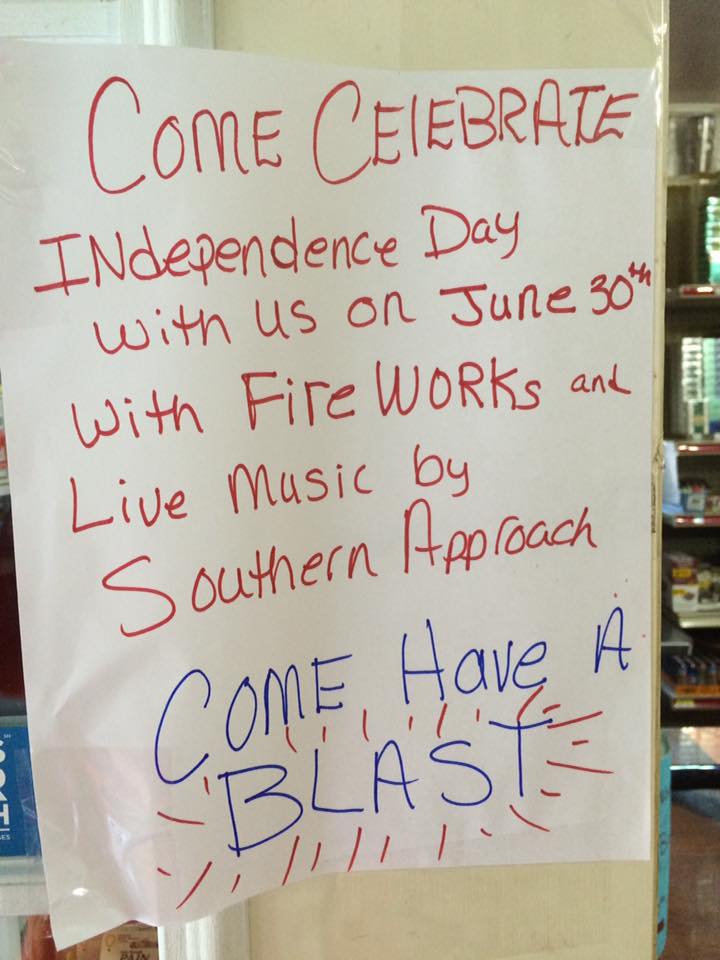 COME CElEBRATE
INdependence Day
with us on June 30th
with FireWORKs and
Live Music by
Southern Approach
COME Have A
BLAST